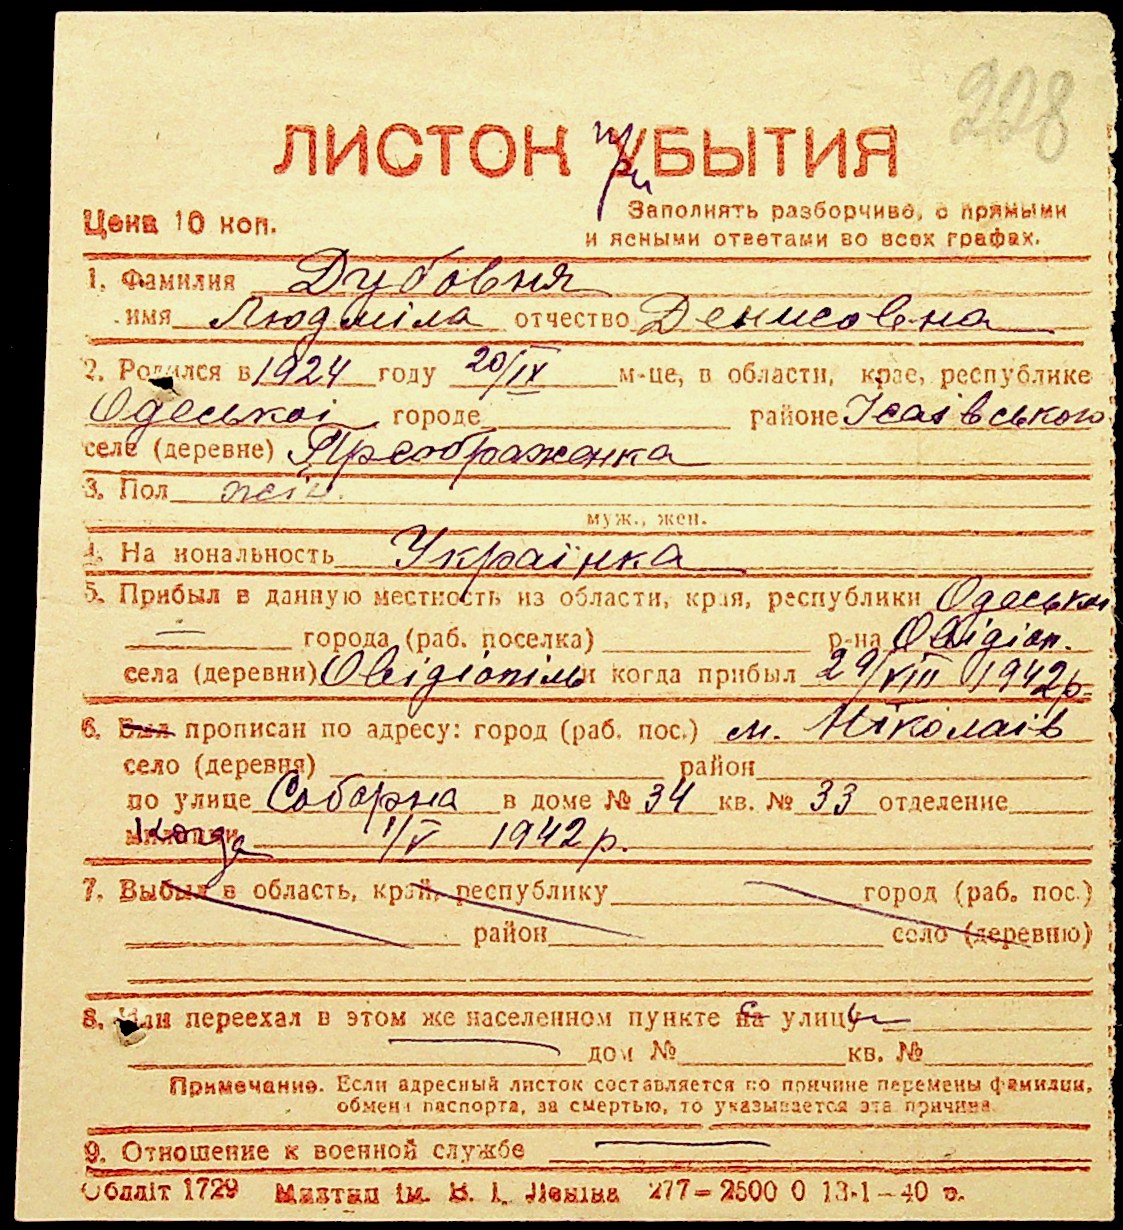 228
ЛИСТОК при УБЫТИЯ
Цена 10 коп.
Заполнять разборчиво, с прямыми
и ясными ответами во всех графах.
1. Фамилия Дубовня
имя Людміла отчество Денисовна
2. Родился в 1924 году 20/IV м-це, в области, крае, республике
Одеської городе районе Ісаівського
селе (деревне) Преображенка
3. Пол жін.
муж., жен.
4. Национальность Українка
5. Прибыл в данную местность из области, края, республики Одеської
— города (раб. поселка) р-на Овідіоп.
села (деревни) Овідіопіль и когда прибыл 29/VIII 1942р.
6. Был прописан по адресу: город (раб. пос.) м. Ніколаів
село (деревня) район
по улице Соборна в доме № 34 кв. № 33 отделение
милиции Когда 1/V 1942 р.
7. Выбыл в область, край, республику город (раб. пос.)
район село (деревню)
8. Или переехал в этом же населенном пункте на с улицы —
дом № кв. №
Примечание. Если адресный листок составляется по причине перемены фамилии,
обмена паспорта, за смертью, то указывается эта причина.
9. Отношение к военной службе —
Обліт 1729 Миктип ім. В. І. Леніна 277—2500 0 13-1—40 р.